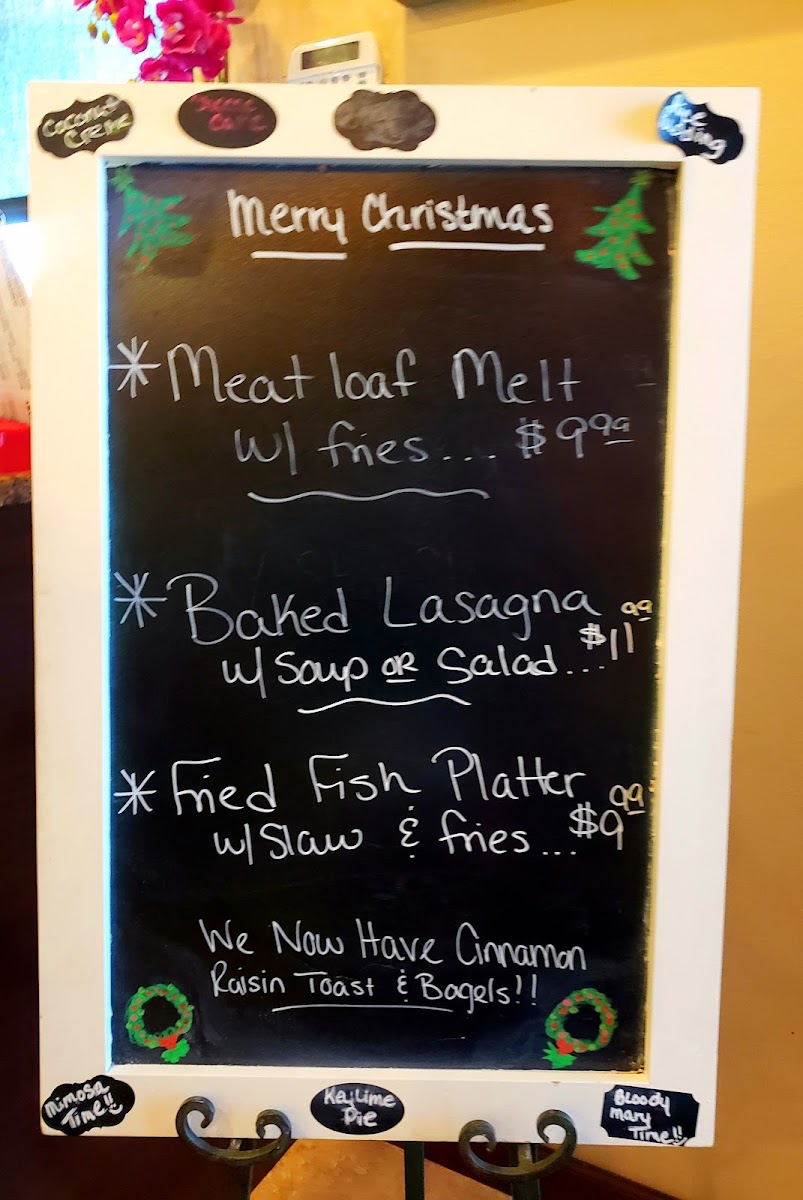 Coconut
Creme
Merry Christmas
* Meat loaf Melt
w/ fries... $9.99
* Baked Lasagna
w/ Soup OR Salad... $11.99
* Fried Fish Platter
w/ Slaw & fries... $9.99
We Now Have Cinnamon
Raisin Toast & Bagels!!
Mimosa
Time!!
Key Lime
Pie
Bloody
Mary
Time!!